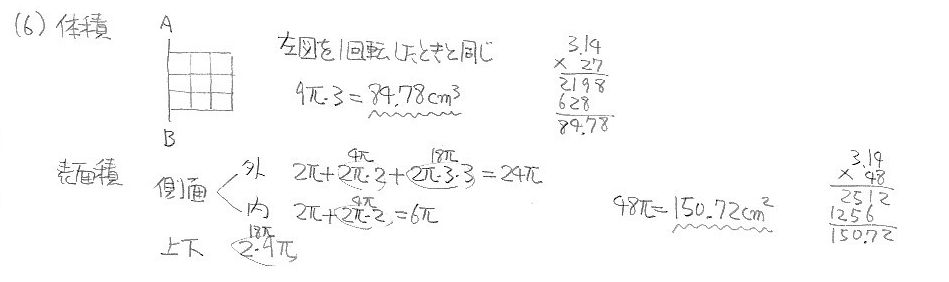 (6) 体積
A
B
左図を1回転したときと同じ
9π·3=84.78cm³
3.14
× 27
2198
628
84.78
表面積
側面
外 2π+2π·2+2π·3·3=24π
4π
18π
内 2π+2π·2=6π
4π
上下 2·9π
18π
48π=150.72cm²
3.14
× 48
2512
1256
150.72